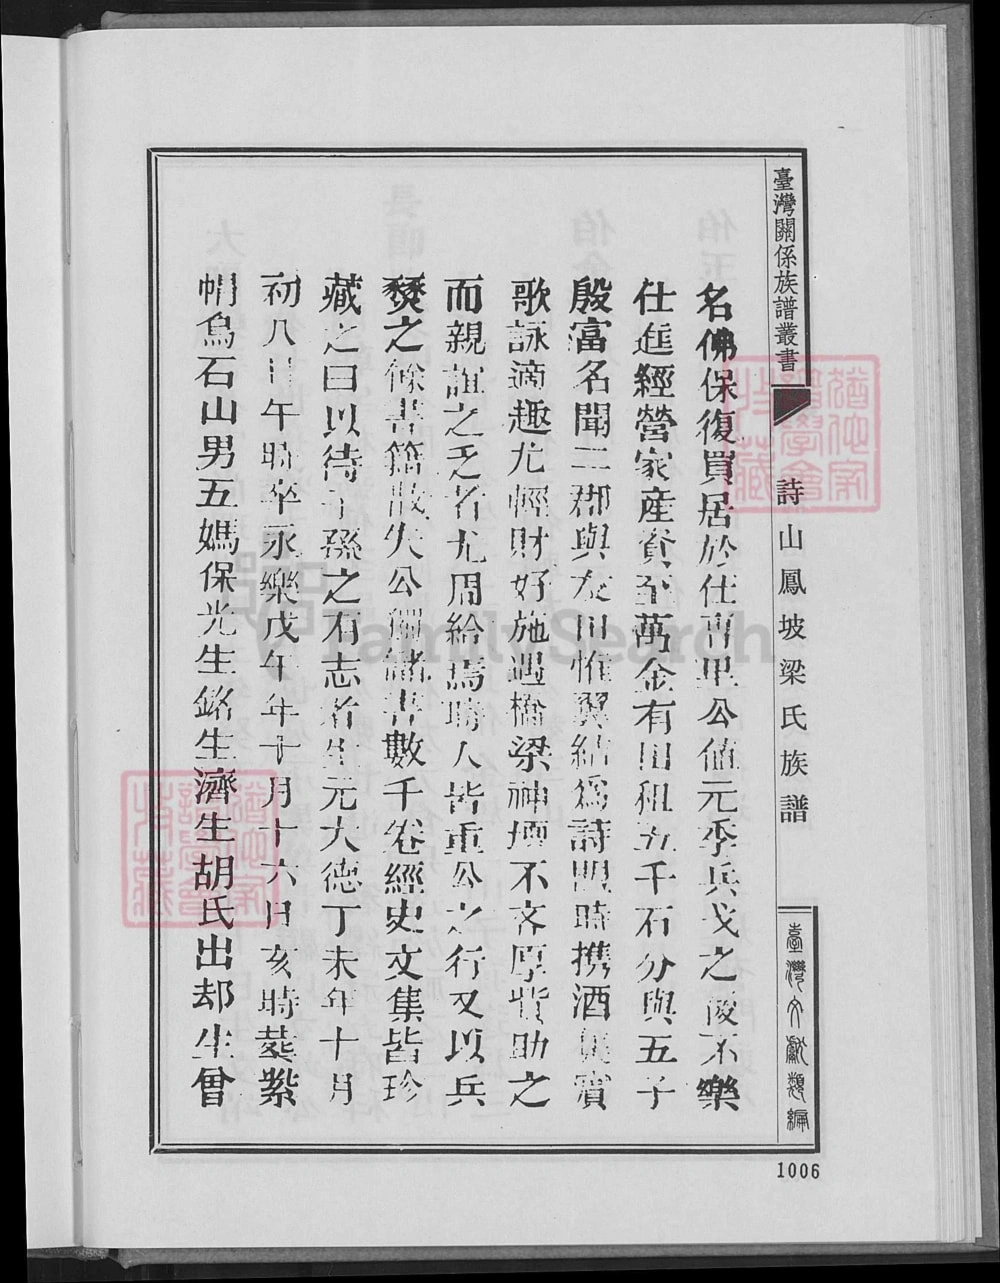 臺灣關係族譜叢書
詩山鳳坡梁氏族譜
臺灣文獻類編
名佛保復買居於仕曹里公値元季兵戈之後不樂
仕進經營家產資至萬金有田租五千石分與五子
殷富名聞二郡與友田惟翼結爲詩盟時携酒集賓
歌詠適趣尤輕財好施遇橋梁神壇不吝厚貲助之
而親誼之乏者尤周給焉時人皆重公之行又以兵
燹之餘書籍散失公儲書數千卷經史文集皆珍
藏之曰以待子孫之有志者生元大德丁未年十月
初八日午時卒永樂戊午年十月十六日亥時葬紫
帽烏石山男五媽保光生銘生濟生胡氏出却生曾
1006
FamilySearch